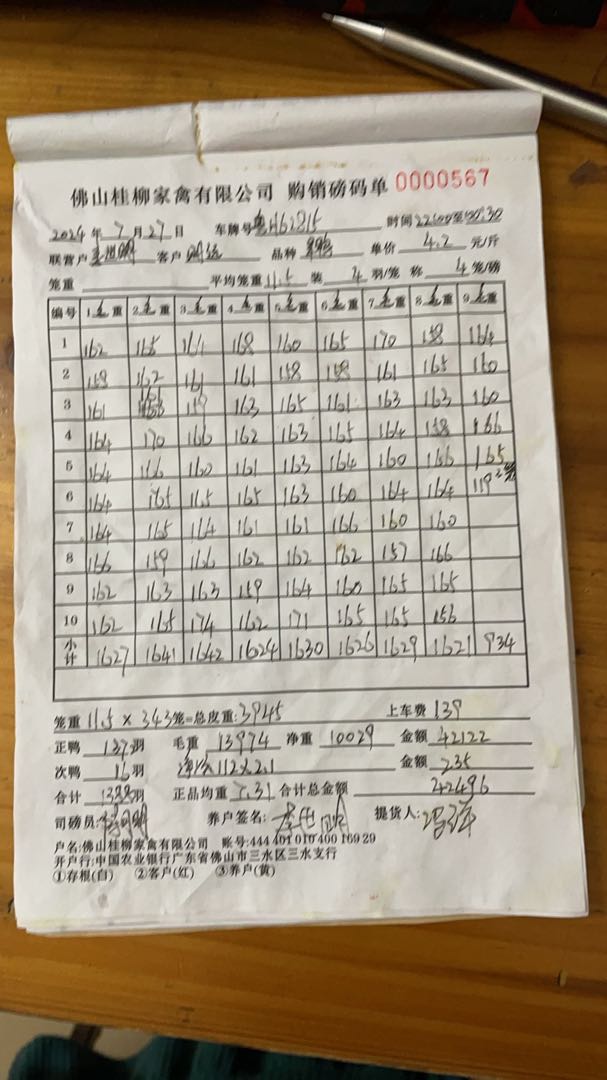 佛山桂柳家禽有限公司 购销磅码单 0000567
2024 年 7 月 27 日 车牌号 H62815 时间
联营户 客户 品种 单价 4.2 元/斤
笼重 平均笼重 11.5 装 4 羽/笼 称 4 笼/磅
编号 1.毛重 2.毛重 3.毛重 4.毛重 5.毛重 6.毛重 7.毛重 8.毛重 9.毛重
1 162 165 164 168 160 165 170 158 164
2 158 162 161 161 158 158 161 165 160
3 161 159 163 165 161 163 163 160
4 164 170 166 162 163 165 164 158 166
5 164 166 160 161 163 164 160 166 165
6 164 165 165 165 163 160 164 164 119
7 164 165 164 161 161 166 160 160
8 166 159 166 162 162 162 157 166
9 162 163 163 159 164 160 165 165
10 162 165 174 162 171 165 165 156
小计 1627 1641 1642 1624 1630 1626 1629 1621 934
笼重 11.5 × 343 笼=总皮重: 3945 上车费 139
正鸭 羽 毛重 13974 净重 10029 金额 42122
次鸭 16 羽 112×2.1 金额 235
合计 羽 正品均重 7.31 合计总金额 42496
司磅员: 养户签名: 提货人:
户名:佛山桂柳家禽有限公司 账号:444 401 010 400 169 29
开户行:中国农业银行广东省佛山市三水区三水支行
①存根(白) ②客户(红) ③养户(黄)